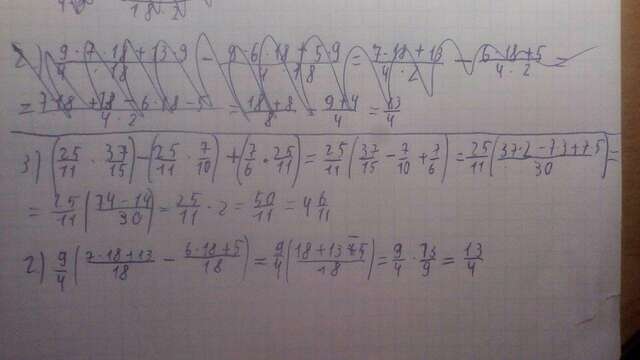 18 · 2
2) 9 · 7 · 18 + 13 · 9 / 4 · 18 - 9 · 6 · 18 + 5 · 9 / 4 · 18 = 7 · 18 + 13 / 4 · 2 - 6 · 18 + 5 / 4 · 2 =
= 7 · 18 + 13 - 6 · 18 - 5 / 4 · 2 = 18 + 8 / 8 = 9 + 4 / 4 = 13 / 4
3) (25/11 · 37/15) - (25/11 · 7/10) + (7/6 · 25/11) = 25/11 (37/15 - 7/10 + 7/6) = 25/11 (37·2 - 7·3 + 7·5 / 30) =
= 25/11 (74 - 14 / 30) = 25/11 · 2 = 50/11 = 4 6/11
2) 9/4 (7·18+13 / 18 - 6·18+5 / 18) = 9/4 (18+13-5 / 18) = 9/4 · 13/9 = 13/4